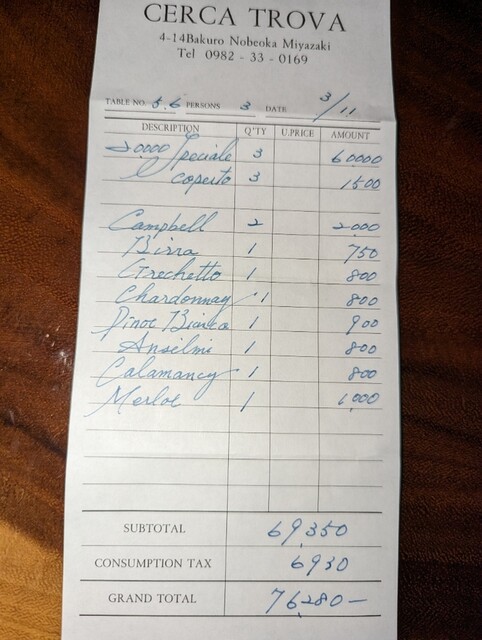 CERCA TROVA
4-14Bakuro Nobeoka Miyazaki
Tel 0982 - 33 - 0169
TABLE NO. 5.6 PERSONS 3 DATE 3/11
DESCRIPTION Q'TY U.PRICE AMOUNT
20000 Speciale 3 60000
coperto 3 1500
Campbell 2 2000
Birra 1 750
Grechetto 1 800
Chardonnay 1 800
Pinot Bianco 1 900
Anselmi 1 800
Calamancy 1 800
Merlot 1,000
SUBTOTAL 69,350
CONSUMPTION TAX 6930
GRAND TOTAL 76,280-